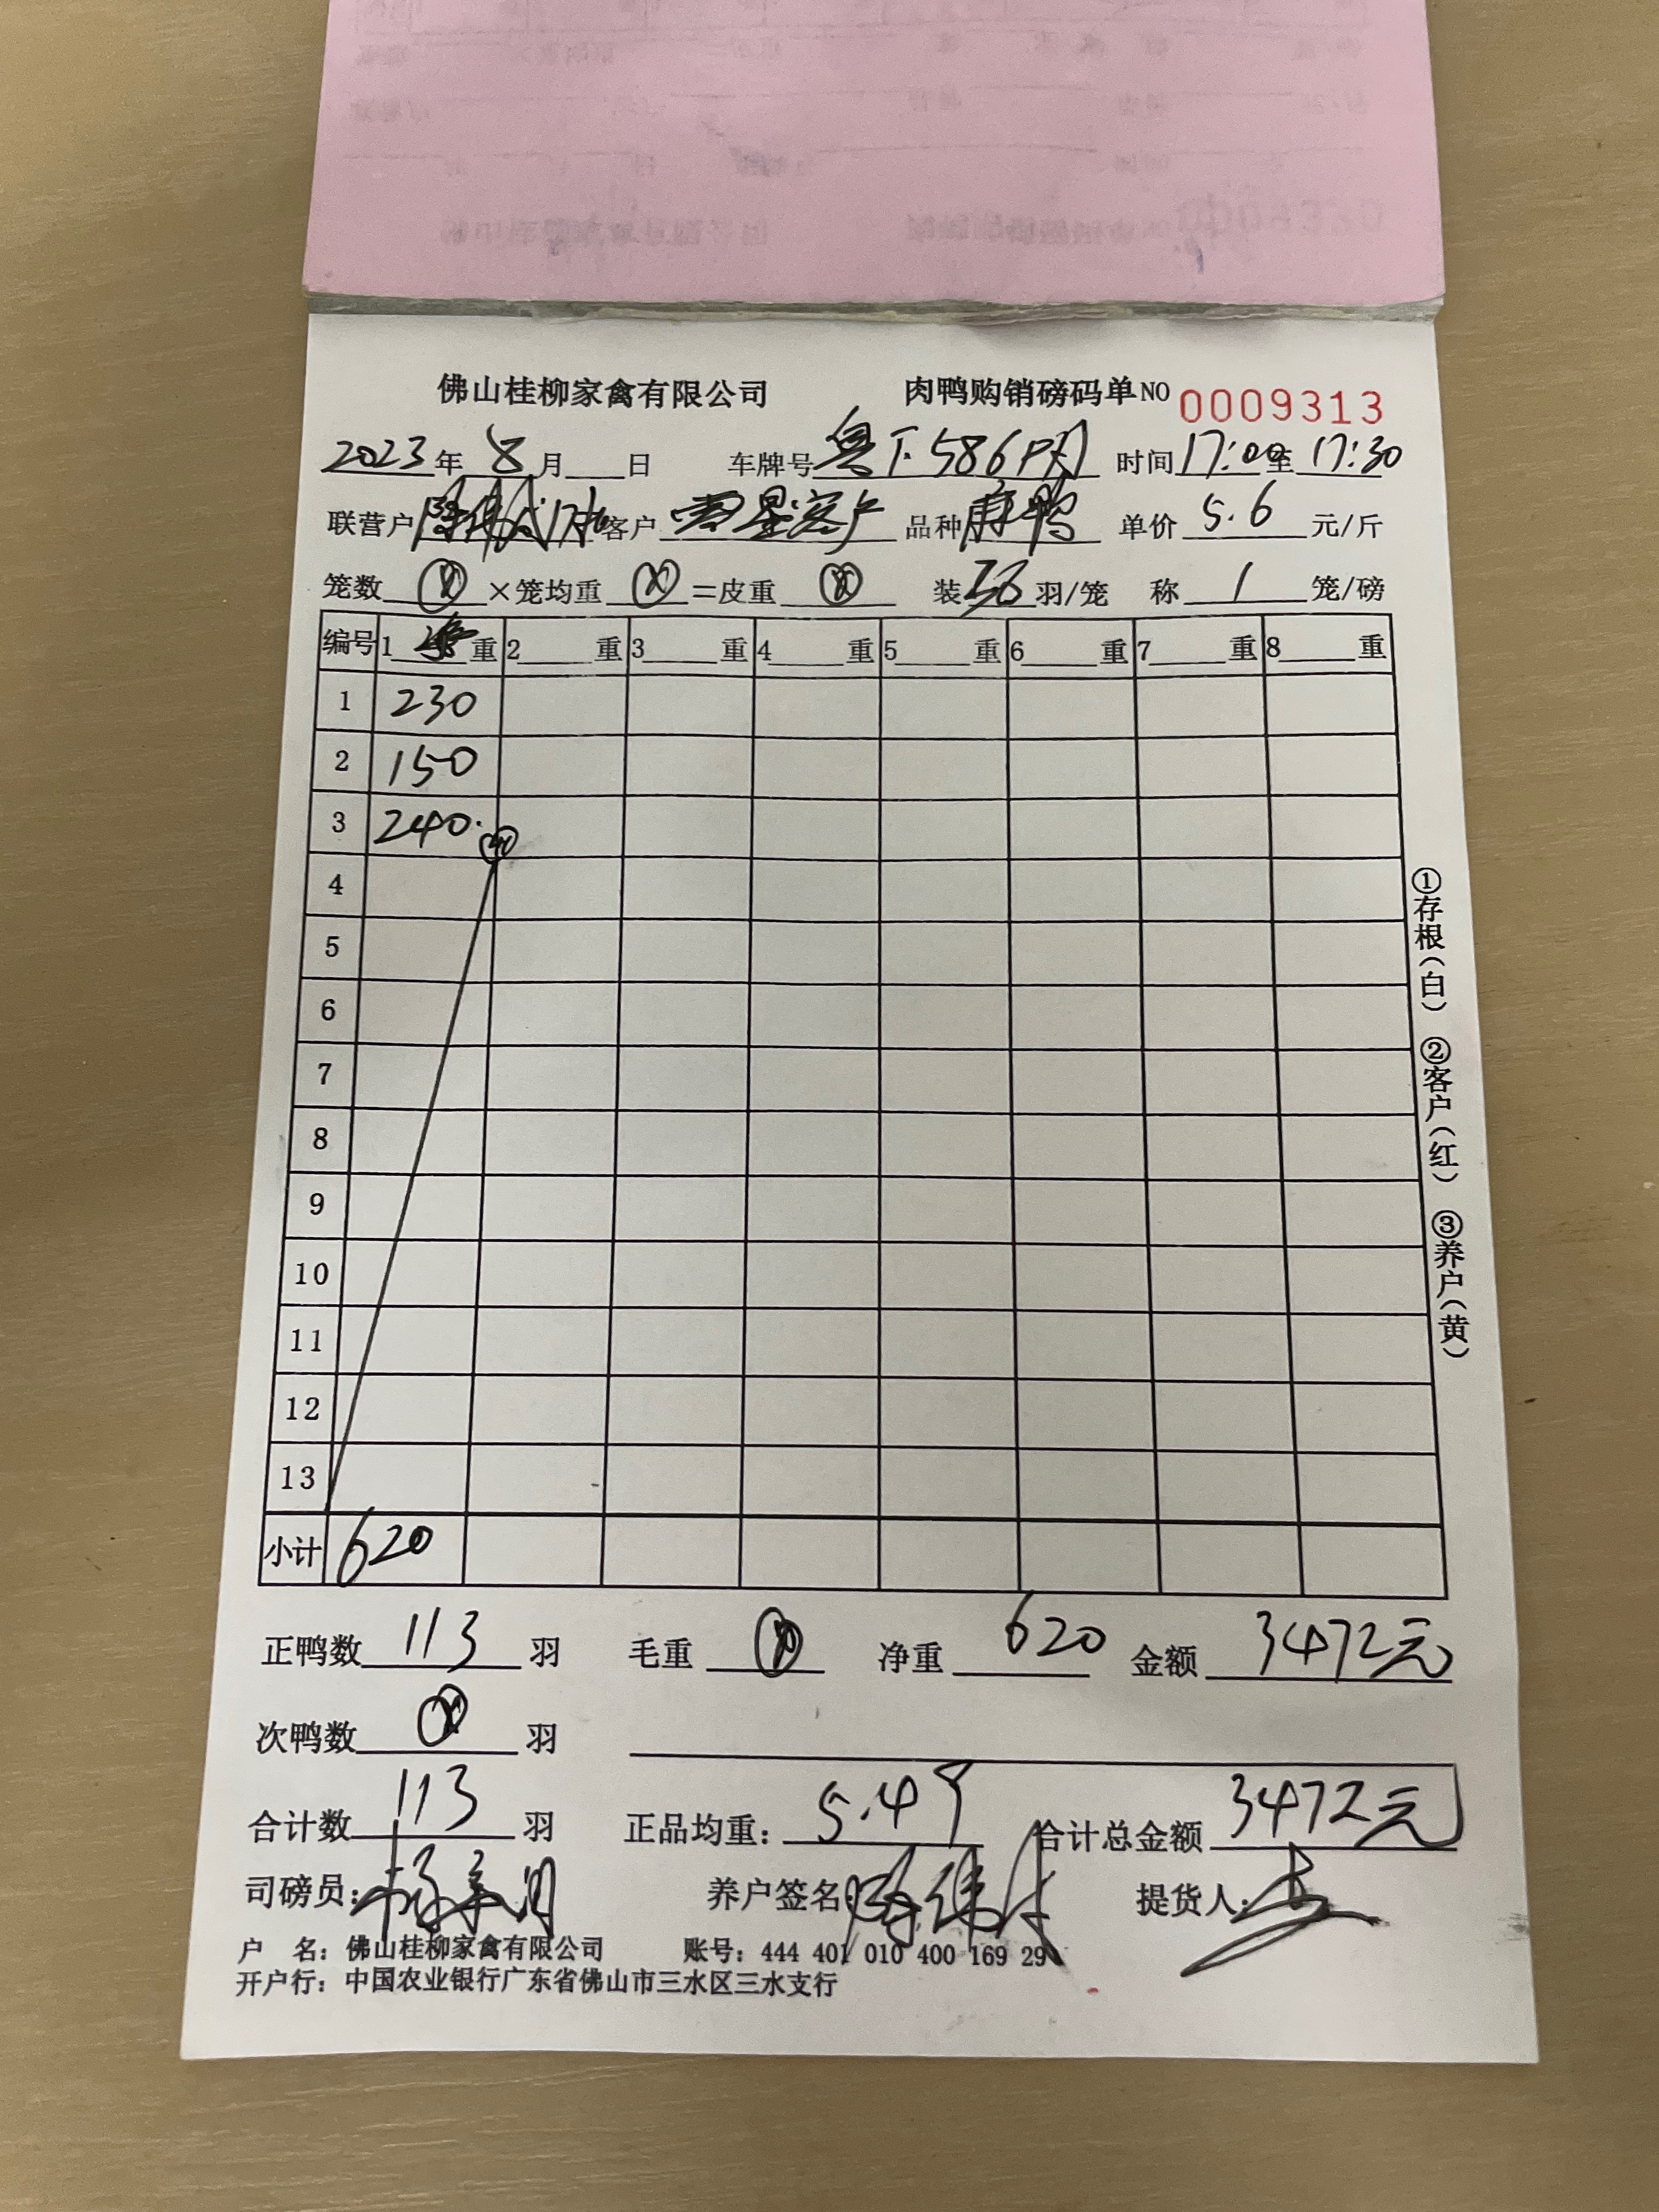 佛山桂柳家禽有限公司 肉鸭购销磅码单NO 0009313
2023年 8月 日 车牌号 586 时间17:00至17:30
联营户 客户 零星客户 品种 麻鸭 单价 5.6 元/斤
笼数 ×笼均重 =皮重 装 羽/笼 称 1 笼/磅
编号 1 重 2 重 3 重 4 重 5 重 6 重 7 重 8 重
1 230
2 150
3 240
4
5
6
7
8
9
10
11
12
13
小计 620
正鸭数 113 羽 毛重 净重 620 金额 3472元
次鸭数 羽
合计数 113 羽 正品均重: 5.49 合计总金额 3472元
司磅员: 养户签名: 提货人:
户 名: 佛山桂柳家禽有限公司 账号: 444 401 010 400 169 29
开户行: 中国农业银行广东省佛山市三水区三水支行
①存根(白) ②客户(红) ③养户(黄)